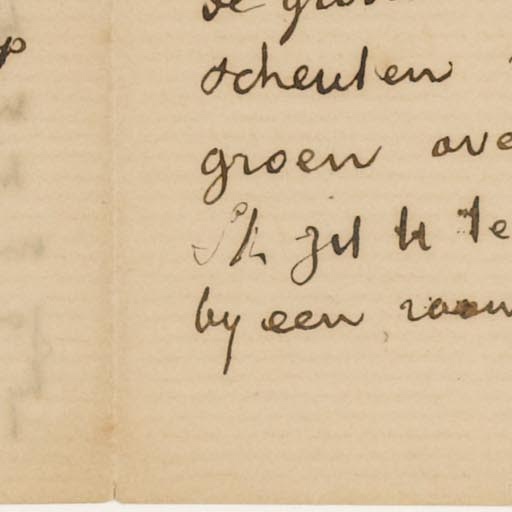 p
de gro
scheuten
groen ove
Ik zit U te
by een raam